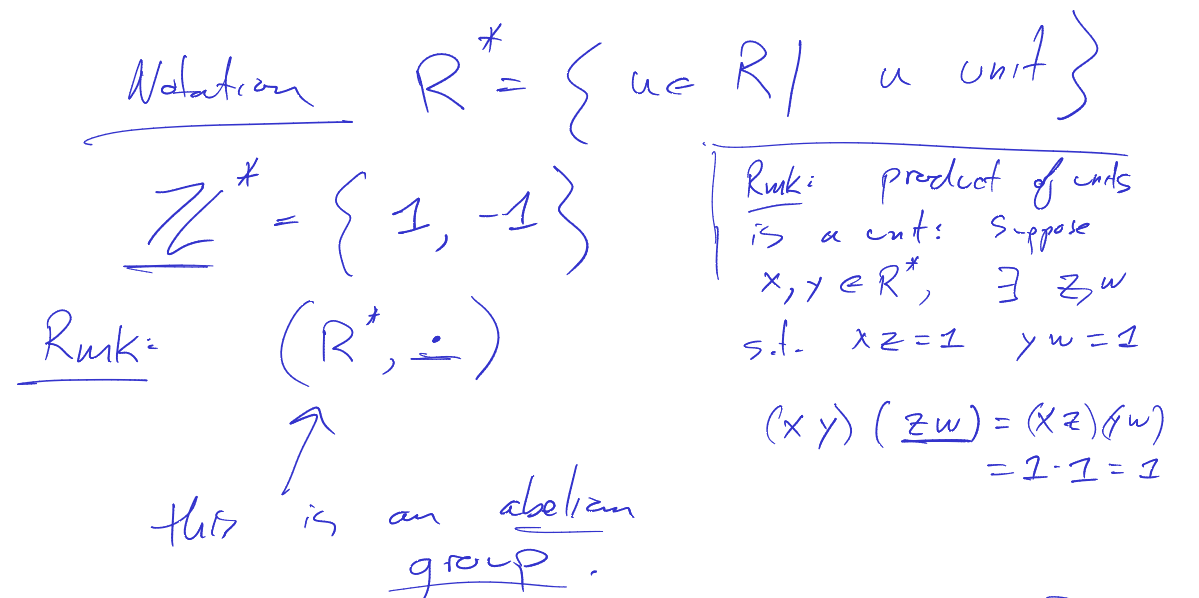 Notation R* = { u ∈ R | u unit }
ℤ* = { 1, -1 }
Rmk: (R*, ·)
this is an abelian
group.
Rmk: product of units
is a unit: suppose
x, y ∈ R*, ∃ z, w
s.t. xz = 1 yw = 1
(xy)(zw) = (xz)(yw)
= 1·1 = 1